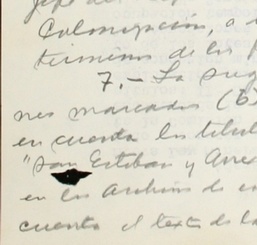 Colonización, a l
terminos de los
7.- La sug
nes marcados (b)
en cuenta los titul
"San Esteban y Anex
en los Archivos de
cuenta el texto de la